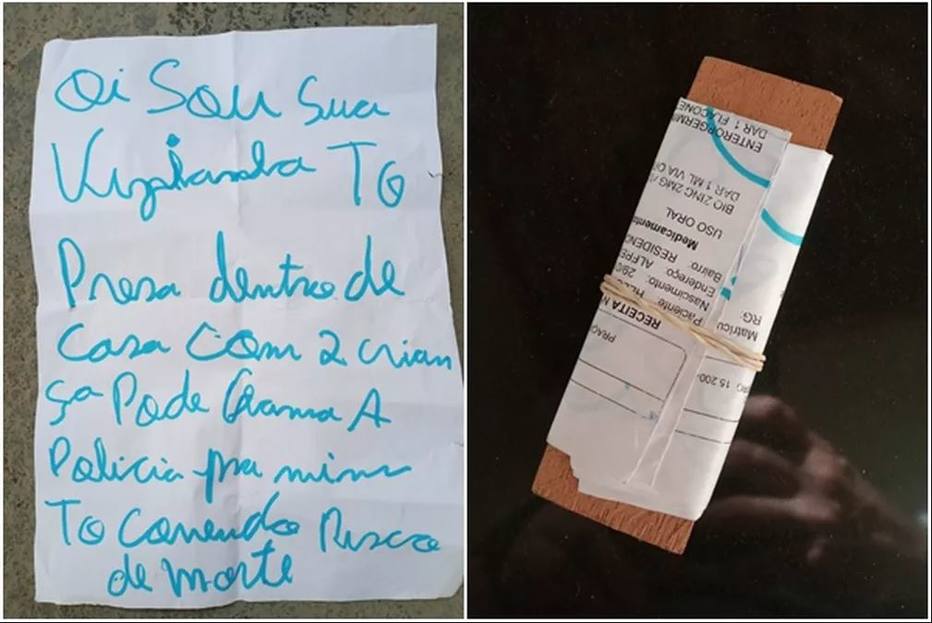 Oi Sou Sua
Vizianha TO
Presa dentro de
Casa Com 2 crian
ça Pode Chama A
Policia pra mim
To Correndo Risco
de morte
ENTEROGERMI
DAR 1 FLACONE
BIO ZINC 2MG/
DAR 1 ML VIA O
USO ORAL
Medicamento
Bairro: RESIDENC
Endereço: ALFRE
Nascimento: 29/0
Paciente
RECEITA
PRAÇ
RG:
Matrícu
15.200-